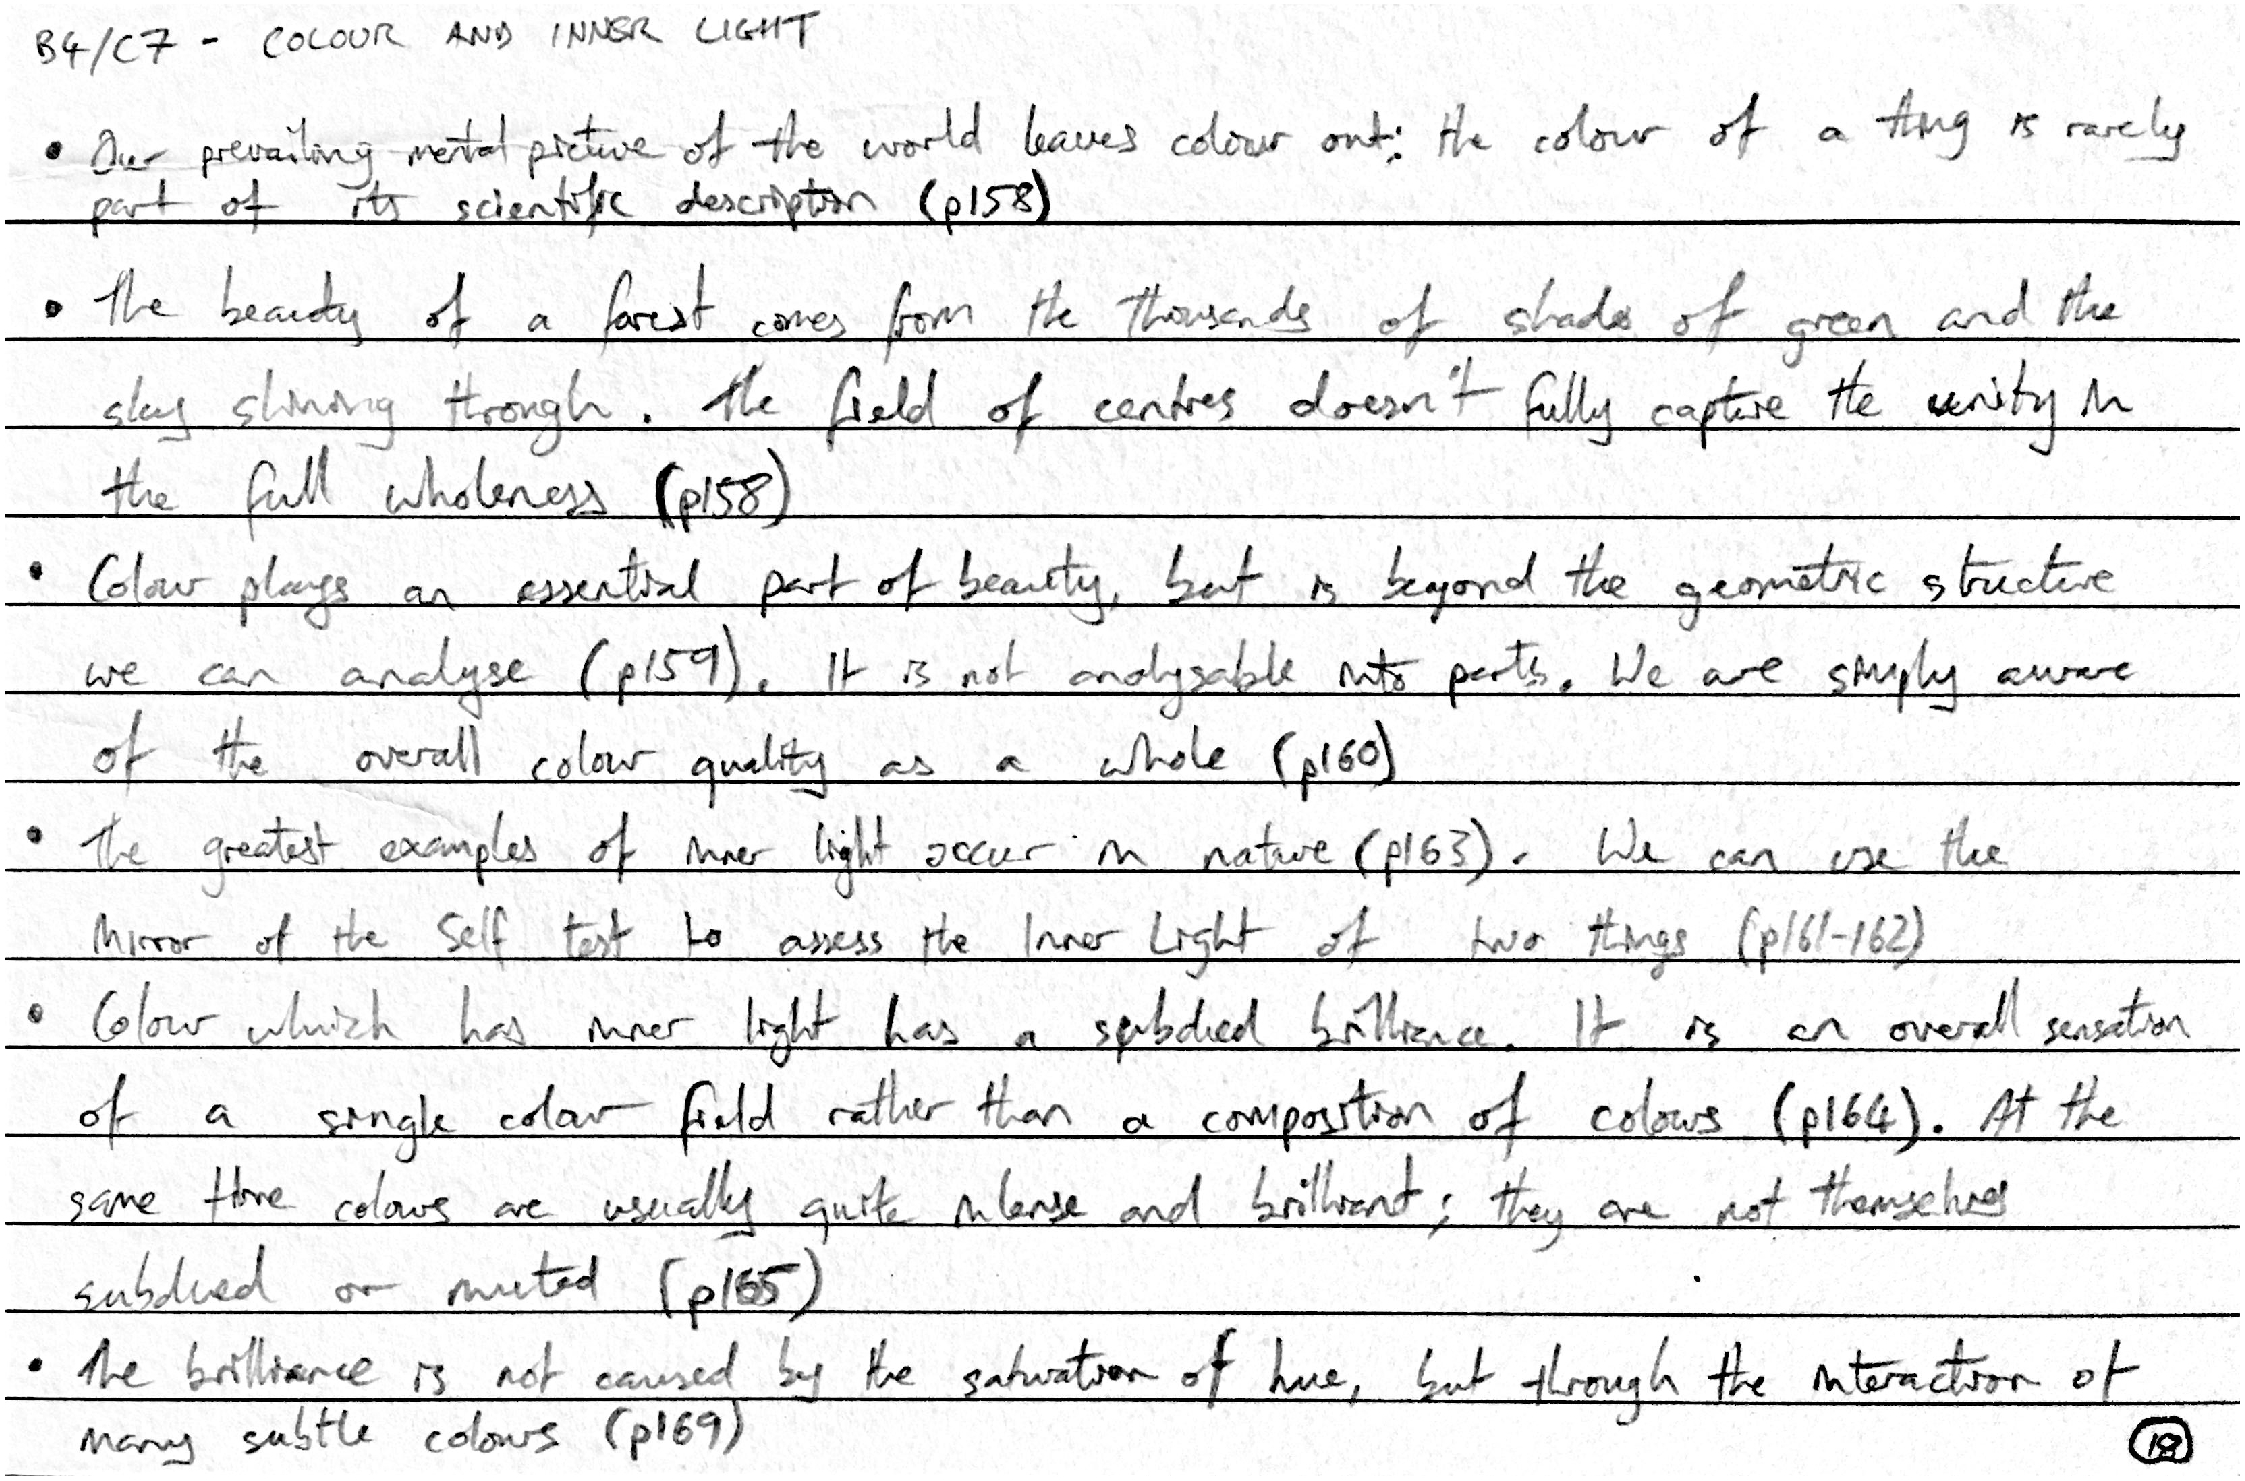 B4/C7 - COLOUR AND INNER LIGHT
• Our prevailing mental picture of the world leaves colour out: the colour of a thing is rarely
part of its scientific description (p158)
• The beauty of a forest comes from the thousands of shades of green and the
sky shining through. The field of centres doesn't fully capture the unity in
the full wholeness (p158)
• Colour plays an essential part of beauty, but is beyond the geometric structure
we can analyse (p159). It is not analysable into parts. We are simply aware
of the overall colour quality as a whole (p160)
• The greatest examples of inner light occur in nature (p163). We can use the
Mirror of the Self test to assess the Inner Light of two things (p161-162)
• Colour which has inner light has a subdued brilliance. It is an overall sensation
of a single colour field rather than a composition of colours (p164). At the
same time colours are usually quite intense and brilliant; they are not themselves
subdued or muted (p165)
• The brilliance is not caused by the saturation of hue, but through the interaction of
many subtle colours (p169)